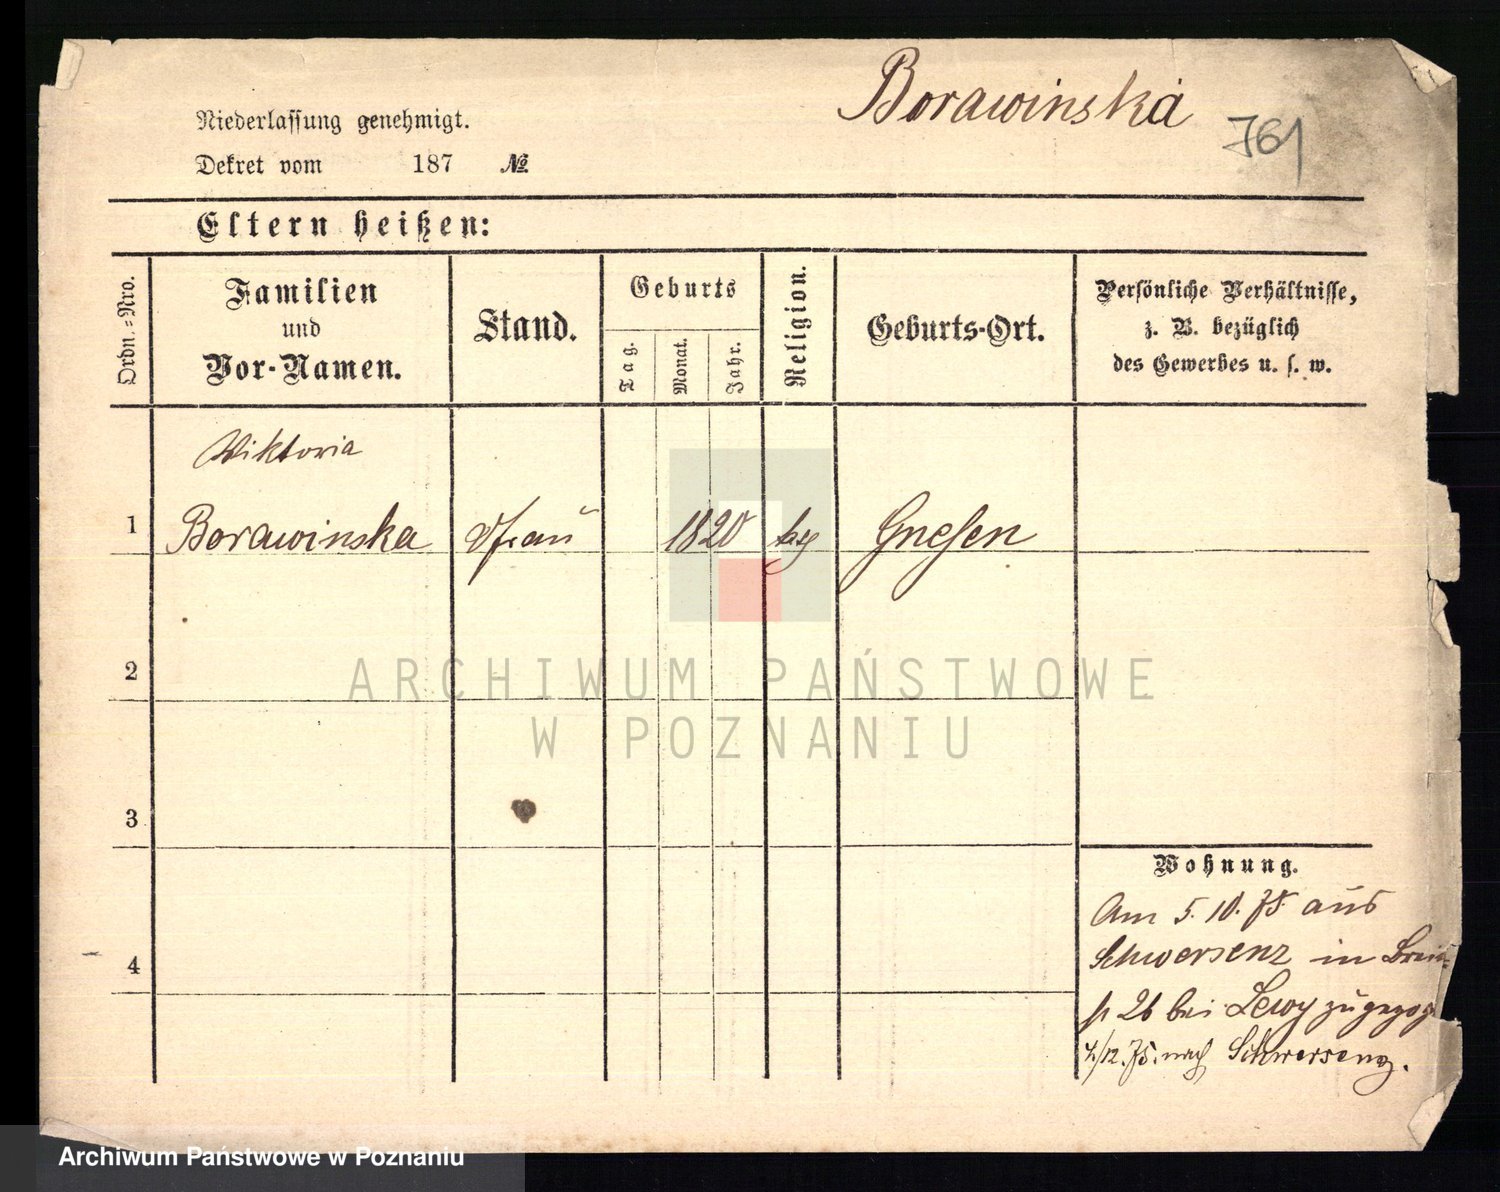 Borawinska
761
Niederlassung genehmigt.
Dekret vom 187 No
Eltern heißen:
Ordn.=Nro.
Familien
und
Vor-Namen.
Stand.
Geburts
Tag.
Monat.
Jahr.
Religion.
Geburts-Ort.
Persönliche Verhältnisse,
z. B. bezüglich
des Gewerbes u. s. w.
Wiktoria
1 Borawinska Frau 1820 Gnesen
2
3
4
Wohnung.
Am 5. 10. 75. aus
Schwersenz in
26 bei Lewy
4./12. 75. nach Schwersenz.
ARCHIWUM PAŃSTWOWE
W POZNANIU
Archiwum Państwowe w Poznaniu